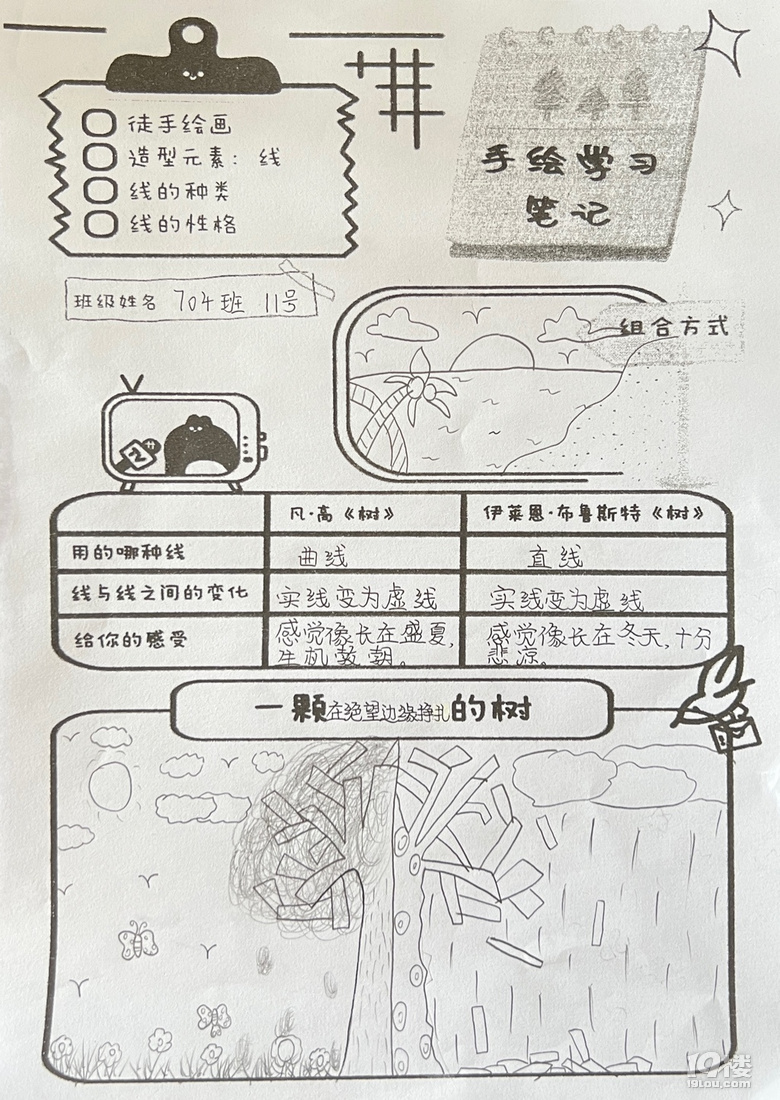 徒手绘画
造型元素：线
线的种类
线的性格
手绘学习
笔记
班级姓名 704班 11号
组合方式
凡·高《树》 伊莱恩·布鲁斯特《树》
用的哪种线 曲线 直线
线与线之间的变化 实线变为虚线 实线变为虚线
给你的感受 感觉像长在盛夏, 感觉像长在冬天,十分
生机敦朝。 悲凉。
一颗在绝望边缘挣扎的树
19楼
19lou.com